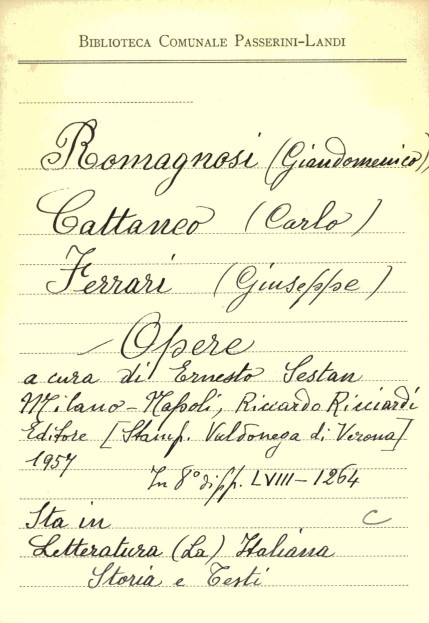 BIBLIOTECA COMUNALE PASSERINI-LANDI
Romagnosi (Giandomenico),
Cattaneo (Carlo)
Ferrari (Giuseppe)
- Opere
a cura di Ernesto Sestan
Milano - Napoli, Riccardo Ricciardi
Editore [Stamp. Valdonega di Verona]
1957
In 8° di pp. LVIII - 1264
Sta in C
Letteratura (La) Italiana
Storia e Testi